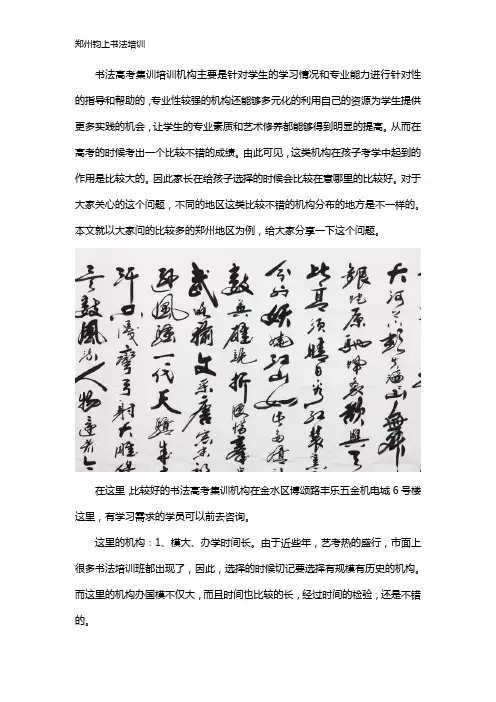 郑州钧上书法培训
书法高考集训培训机构主要是针对学生的学习情况和专业能力进行针对性
的指导和帮助的，专业性较强的机构还能够多元化的利用自己的资源为学生提供
更多实践的机会，让学生的专业素质和艺术修养都能够得到明显的提高。从而在
高考的时候考出一个比较不错的成绩。由此可见，这类机构在孩子考学中起到的
作用是比较大的。因此家长在给孩子选择的时候会比较在意哪里的比较好。对于
大家关心的这个问题，不同的地区这类比较不错的机构分布的地方是不一样的。
本文就以大家问的比较多的郑州地区为例，给大家分享一下这个问题。
銀蛇原馳蠟象欲與天
此高須晴日看紅裝素
分外妖嬈江山如此多嬌
數英雄競折腰惜秦皇
武略輸文采唐宗宋祖
遜風騷一代天驕成
汗只識彎弓射大雕俱
矣數風流人物還看今
在这里，比较好的书法高考集训机构在金水区博颂路丰乐五金机电城 6 号楼
这里，有学习需求的学员可以前去咨询。
这里的机构：1、模大、办学时间长。由于近些年，艺考热的盛行，市面上
很多书法培训班都出现了，因此，选择的时候切记要选择有规模有历史的机构。
而这里的机构办国模不仅大，而且时间也比较的长，经过时间的检验，还是不错
的。